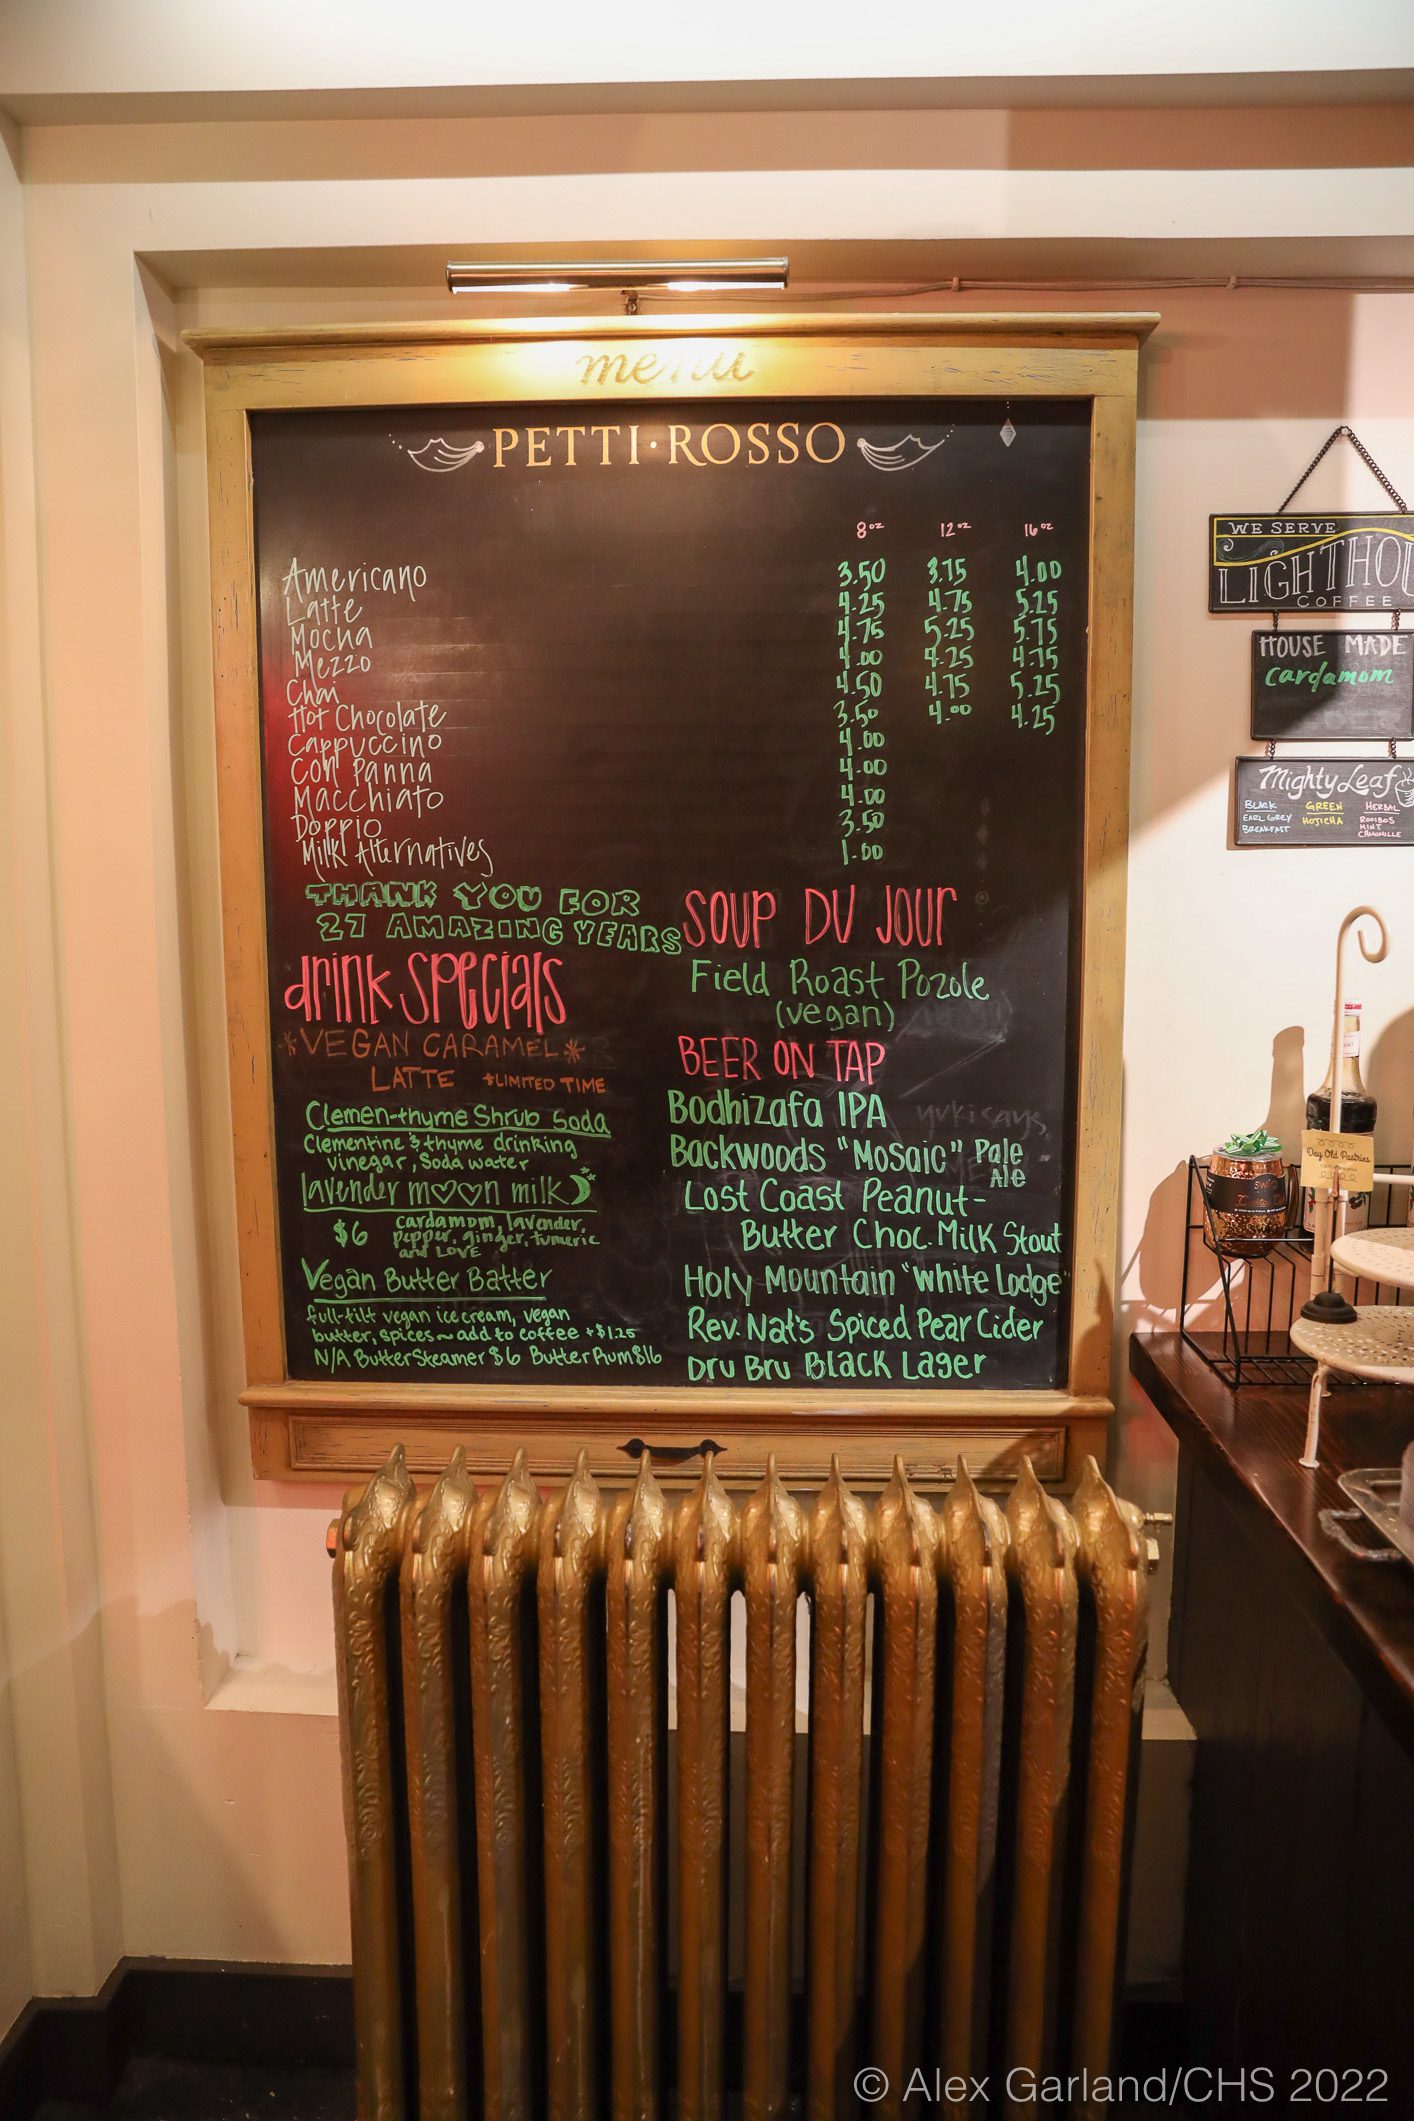 menu
PETTI·ROSSO
8oz 12oz 16oz
Americano 3.50 3.75 4.00
Latte 4.25 4.75 5.25
Mocha 4.75 5.25 5.75
Mezzo 4.00 4.25 4.75
Chai 4.50 4.75 5.25
Hot Chocolate 3.50 4.00 4.25
Cappuccino 4.00
Con Panna 4.00
Macchiato 4.00
Doppio 3.50
Milk Alternatives 1.00
THANK YOU FOR
27 AMAZING YEARS
drink specials
*VEGAN CARAMEL*
LATTE +LIMITED TIME
Clemen-thyme Shrub Soda
Clementine & thyme drinking
vinegar, soda water
lavender m♡♡n milk
$6 cardamom, lavender,
pepper, ginger, tumeric
and LOVE
Vegan Butter Batter
full-tilt vegan ice cream, vegan
butter, spices ~ add to coffee +$1.25
N/A Butter Steamer $6 Butter Rum $16
SOUP DU JOUR
Field Roast Pozole
(vegan)
BEER ON TAP
Bodhizafa IPA
Backwoods "Mosaic" Pale
Ale
Lost Coast Peanut-
Butter Choc. Milk Stout
Holy Mountain "White Lodge"
Rev. Nat's Spiced Pear Cider
Dru Bru Black Lager
yuki says
WE SERVE
LIGHTHOU
COFFEE
HOUSE MADE
cardamom
Mighty Leaf
BLACK GREEN HERBAL
EARL GREY HOJICHA ROOIBOS
BREAKFAST MINT
CHAMOMILLE
Day Old Pastries
© Alex Garland/CHS 2022